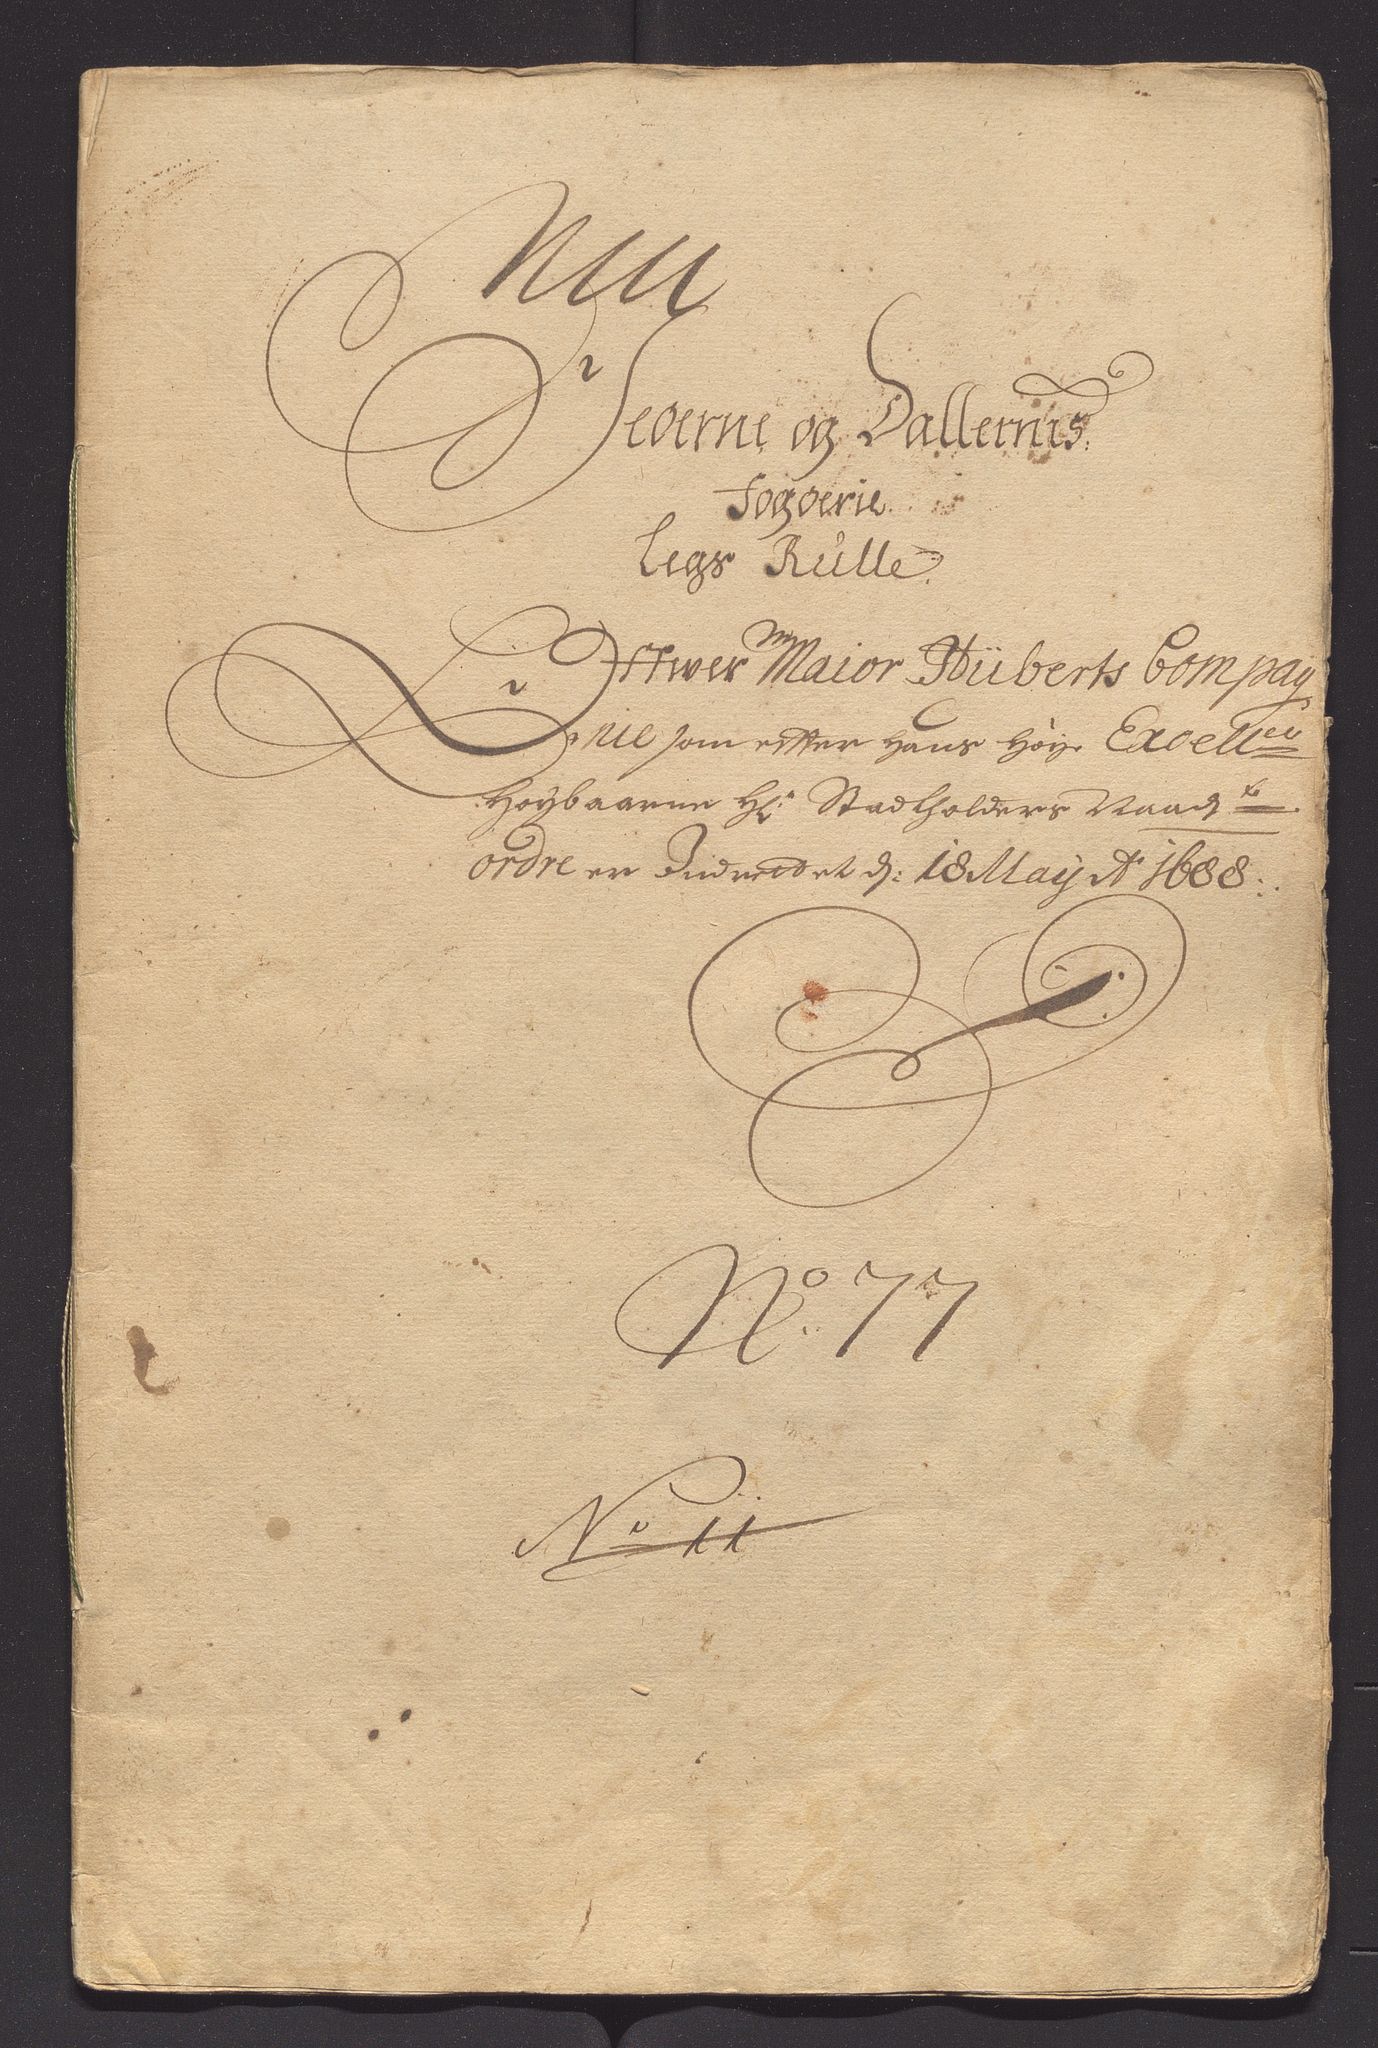 Nu
Jederne og Dallernis
fogderie
Legs Rulle
Offwer Maior Hüberts Compag
nie som effter Hans Höye Excell
Höybaarne Hr: Stadtholders Naad
ordre er Indrettet d: 18 Maij Ao 1688:
No: 77
No 11